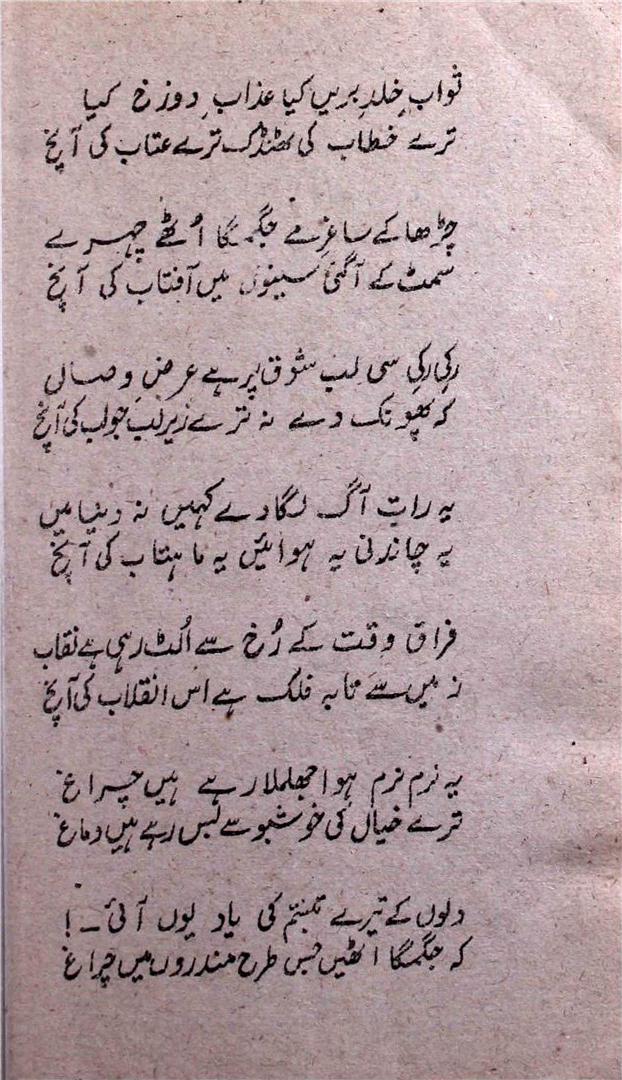 ثوابِ خلدِ بریں کیا عذابِ دوزخ کیا
ترے خطاب کی ٹھنڈک ترے عتاب کی آنچ
چڑھا کے ساغرِ مے جگمگا اُٹھے چہرے
سمٹ کے آگئی سینوں میں آفتاب کی آنچ
رکی رکی سی لب شوق پر ہے عرضِ وصال
کہ پھونک دے نہ ترے زیرلب جواب کی آنچ
یہ رات آگ لگا دے کہیں نہ دنیا میں
یہ چاندنی یہ ہوائیں یہ ماہتاب کی آنچ
فراق وقت کے رُخ سے اُلٹ رہی ہے نقاب
زمیں سے تابہ فلک ہے اس انقلاب کی آنچ
یہ نرم نرم ہوا جھلملا رہے ہیں چراغ
ترے خیال کی خوشبو سے بس رہے ہیں دماغ
دلوں کے تیرے تبسّم کی یاد یوں آئی ۔!
کہ جگمگا اٹھیں جس طرح مندروں میں چراغ